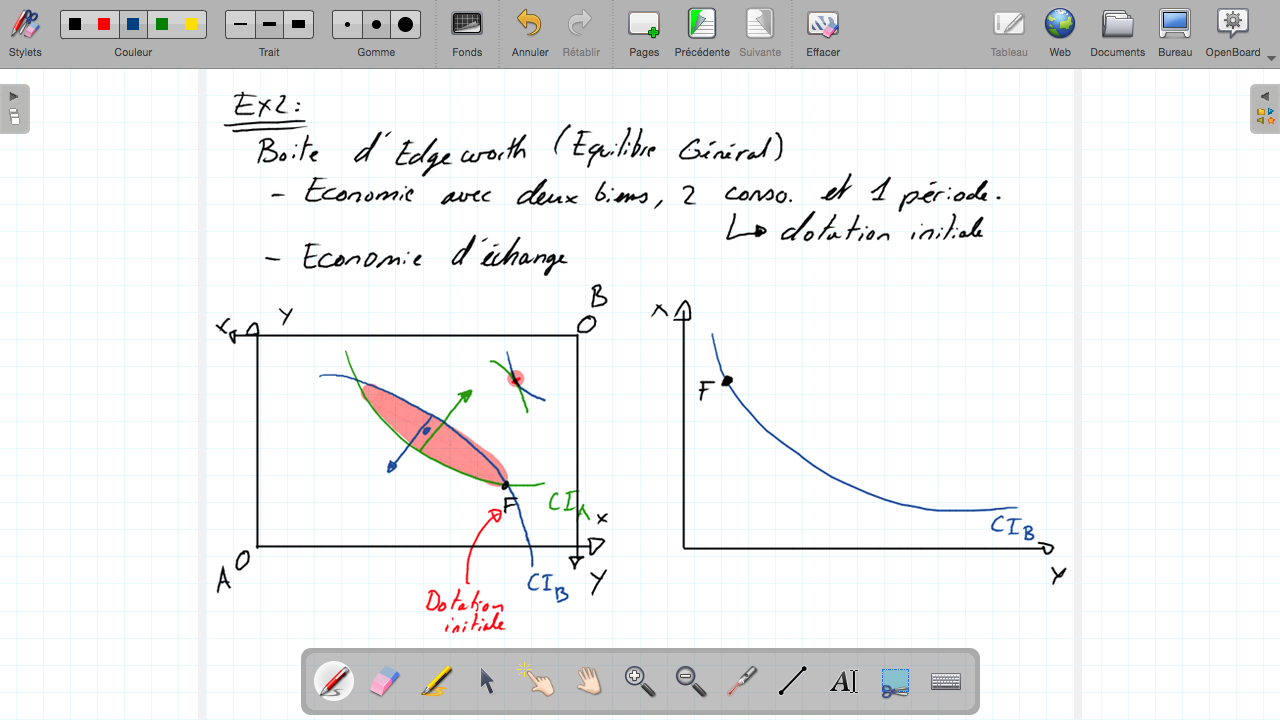 Stylets
Couleur
Trait
Gomme
Fonds
Annuler
Rétablir
Pages
Précédente
Suivante
Effacer
Tableau
Web
Documents
Bureau
OpenBoard
Ex2:
Boite d'Edgeworth (Equilibre Général)
- Economie avec deux biens, 2 conso. et 1 période.
↳ dotation initiale
- Economie d'échange
B
O
X
Y
F
CIA
X
Y
O
A
CIB
Dotation
initiale
X
F
CIB
Y
AI